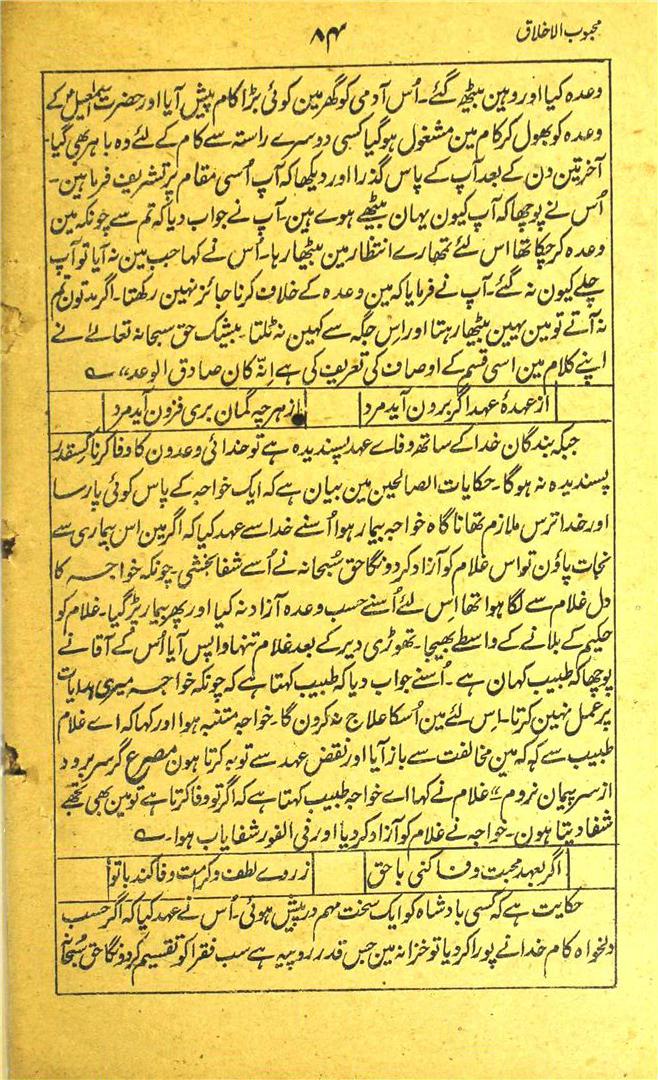 محبوب الاخلاق
۸۴
وعدہ کیا اور وہین بیٹھ گئے۔ اُس آدمی کو گھر مین کوئی بڑا کام پیش آیا اور حضرت اسمٰعیلؑ کے
وعدہ کو بھول کر کام مین مشغول ہو گیا کسی دوسرے راستہ سے کام کے لئے وہ باہر بھی گیا۔
آخر تین دن کے بعد آپ کے پاس گذرا اور دیکھا کہ آپ اُسی مقام پر تشریف فرما ہین۔
اُس نے پوچھا کہ آپ کیون یہان بیٹھے ہوے ہین۔ آپ نے جواب دیا کہ تم سے چونکہ مین
وعدہ کر چکا تھا اس لئے تمھارے انتظار مین بیٹھا رہا۔ اُس نے کہا جب مین نہ آیا تو آپ
چلے کیون نہ گئے۔ آپ نے فرمایا کہ مین وعدہ کے خلاف کرنا جائز نہین رکھتا۔ اگر مدتون تم
نہ آتے تو مین یہین بیٹھا رہتا اور اس جگہ سے کہین نہ ٹلتا۔ بیشک حق سبحانہ تعالےٰ نے
اپنے کلام مین اسی قسم کے اوصاف کی تعریف کی ہے اِنَّہٗ کان صادق الوعد،، ے
از عہدۂ عہد اگر برون آید مرد از ہرچہ گمان بری فزون آید مرد
جبکہ بندگان خدا کے ساتھ وفاے عہد پسندیدہ ہے تو خدائی وعدون کا وفا کرنا کسقدر
پسندیدہ نہ ہو گا۔ حکایات الصالحین مین بیان ہے کہ ایک خواجہ کے پاس کوئی پارسا
اور خدا ترس ملازم تھا ناگاہ خواجہ بیمار ہوا اُسنے خدا سے عہد کیا کہ اگر مین اس بیماری سے
نجات پاؤن تو اس غلام کو آزاد کر دونگا حق سُبحانہ نے اُسے شفا بخشی۔ چونکہ خواجہ کا
دل غلام سے لگا ہوا تھا اِس لئے اُسنے حسب وعدہ آزاد نہ کیا اور پھر بیمار پڑ گیا۔ غلام کو
حکیم کے بلانے کے واسطے بھیجا۔ تھوڑی دیر کے بعد غلام تنہا واپس آیا اُس کے آقا نے
پوچھا کہ طبیب کہان ہے۔ اُسنے جواب دیا کہ طبیب کہتا ہے کہ چونکہ خواجہ میری ہدایات
پر عمل نہین کرتا۔ اِس لئے مین اُسکا علاج نہ کرون گا۔ خواجہ متنبہ ہوا اور کہا کہ اے غلام
طبیب سے کہہ کہ مین مخالفت سے باز آیا اور نقض عہد سے توبہ کرتا ہون مصرع گر سر برود
از سر پیمان نروم،، غلام نے کہا اے خواجہ طبیب کہتا ہے کہ اگر تو وفا کرتا ہے تو مین بھی تجھے
شفا دیتا ہون۔ خواجہ نے غلام کو آزاد کر دیا اور فی الفور شفایاب ہوا۔ ے
اگر بعہد محبت وفا کنی با حق زروے لطف و کرامت وفا کند با تو
حکایت ہے کہ کسی بادشاہ کو ایک سخت مہم درپیش ہوئی۔ اُس نے عہد کیا کہ اگر حسب
دلخواہ کام خدا نے پورا کر دیا تو خزانہ مین جس قدر روپیہ ہے سب فقرا کو تقسیم کر دونگا حق سُبحانہٗ